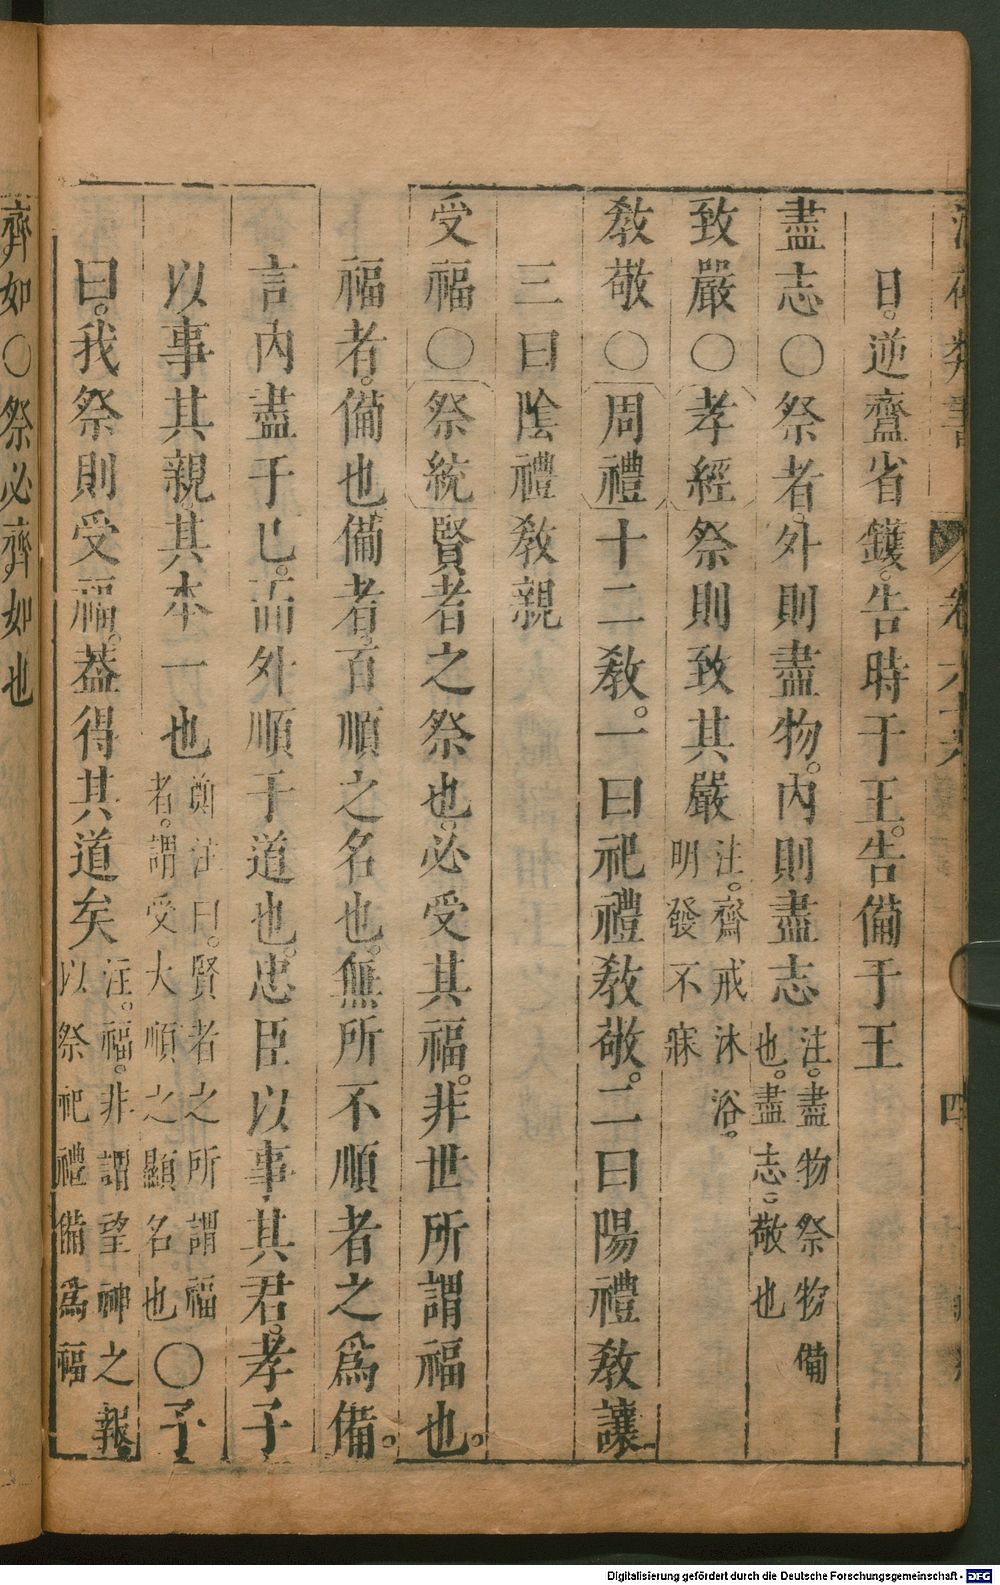 卷六十六 四
日。逆齍省鑊。告時于王。告備于王
盡志〇祭者外則盡物。內則盡志注。盡物祭物備也。盡志。敬也
致嚴〇孝經祭則致其嚴注。齋戒沐浴。明發不寐
敎敬〇周禮十二敎。一曰祀禮敎敬。二曰陽禮敎讓
三曰陰禮敎親
受福〇祭統賢者之祭也。必受其福。非世所謂福也。
福者。備也備者。百順之名也。無所不順者之爲備。
言內盡于已。而外順于道也。忠臣以事其君。孝子
以事其親。其本一也鄭注曰。賢者之所謂福者。謂受大順之顯名也〇子
曰。我祭則受福。葢得其道矣注。福。非謂望神之報以祭祀禮備爲福
齊如〇祭必齊如也
Digitalisierung gefördert durch die Deutsche Forschungsgemeinschaft - DFG